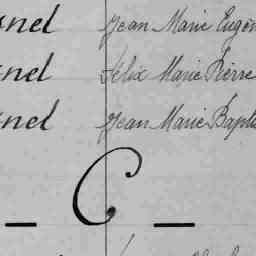 snel Jean Marie Eugèn
snel Félix Marie Pierre
snel Jean Marie Bapti
— C —